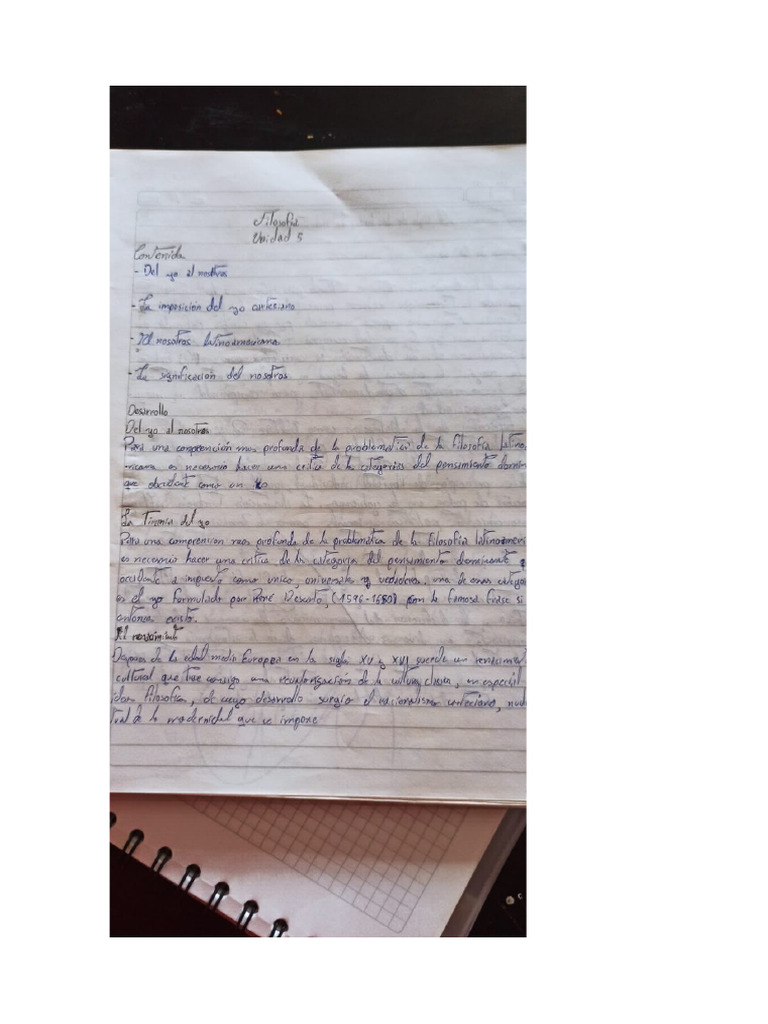 Filosofia
Unidad 5
Contenido
- Del yo al nosotros
- La imposición del yo cartesiano
- El nosotros latinoamericano
- La significación del nosotros
Desarrollo
Del yo al nosotros
Para una comprención mas profunda de la problematica de la filosofia latino
ricana es necesario hacer una critica de la categorias del pensamiento domin
que obcidente como un
La Tirania del yo
Para una comprencion mas profunda de la problemática de la filosofia latinoameri
es necesario hacer una critica de la categoria del pensamiento dominante q
occidente a impuesto como unico, universales y verdaderos, una de esas catego
es el yo formulado por René Descarte, (1596-1650) con la famosa frase si
entonces existo.
El renacimiento
Despues de la edad media Europea en la siglo XV y XVI sucede un renacimie
cultural que trae consigo una revalorización de la cultura clasica, en especial
ideas filosofica, de cuyo desarrollo surgio el racionalismo cartesiano,
de la modernidad que se impone